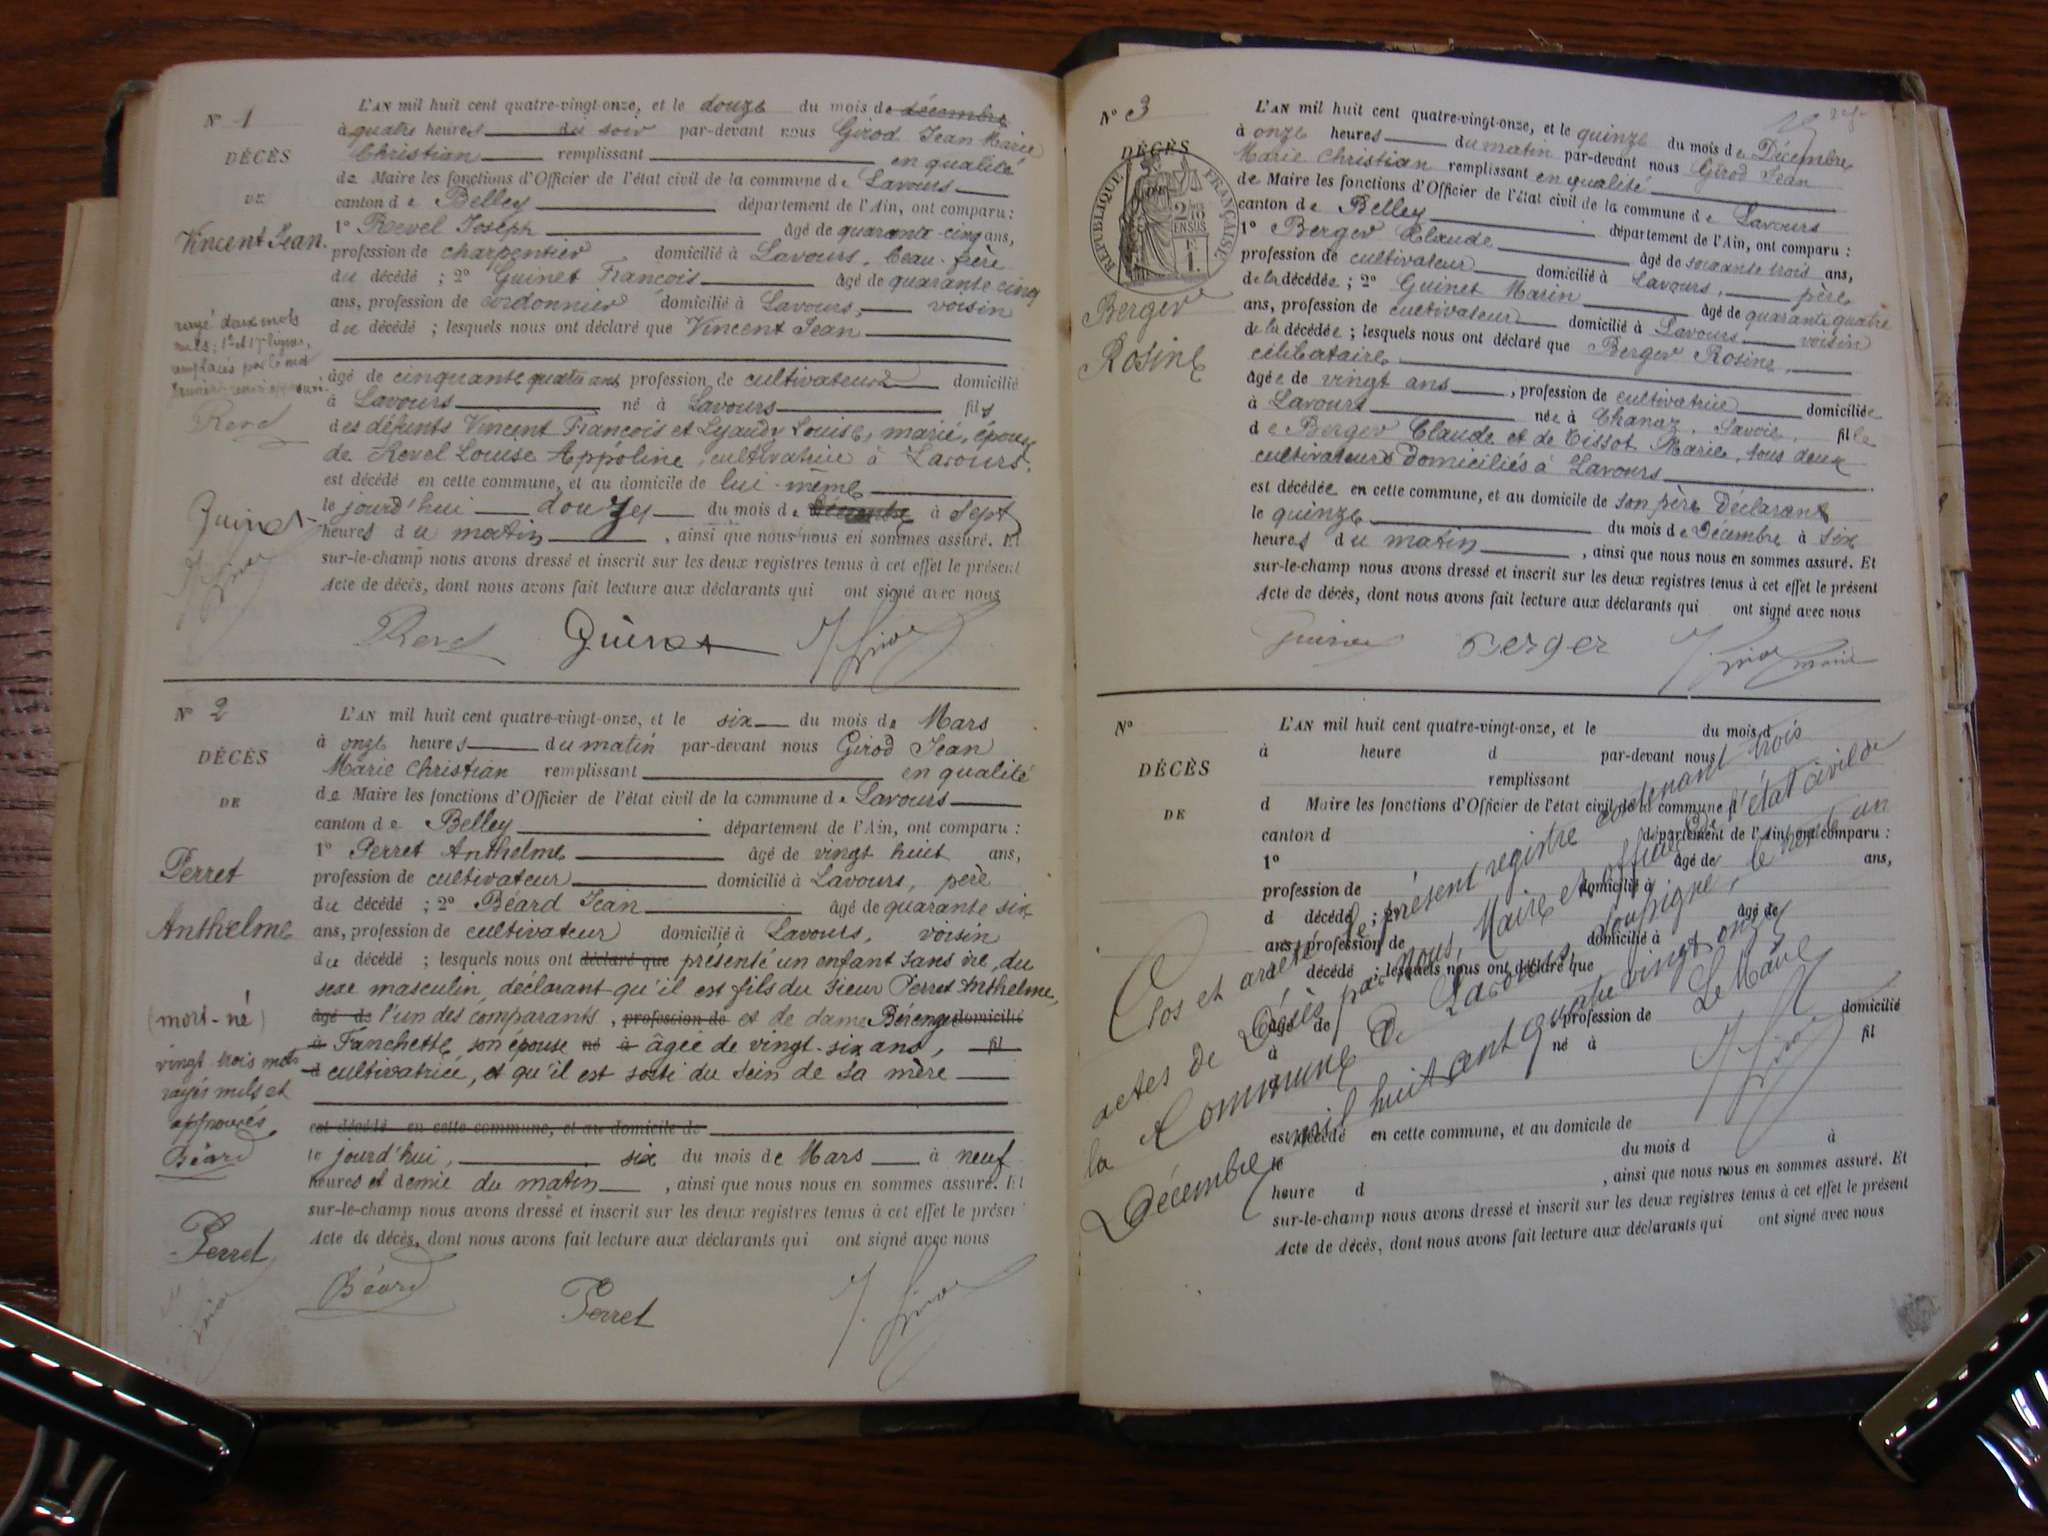 N° 1
DÉCÈS
DE
Vincent Jean.
L'AN mil huit cent quatre-vingt-onze, et le douze du mois de décembre
à quatre heures du soir par-devant nous Girod Jean Marie
Christian remplissant en qualité
de Maire les fonctions d'Officier de l'état civil de la commune de Lavours
canton de Belley département de l'Ain, ont comparu :
1° Revel Joseph âgé de quarante-cinq ans,
profession de charpentier domicilié à Lavours, beau-frère
du décédé ; 2° Guinet François âgé de quarante cinq
ans, profession de cordonnier domicilié à Lavours, voisin
du décédé ; lesquels nous ont déclaré que Vincent Jean
âgé de cinquante quatre ans profession de cultivateur domicilié
à Lavours né à Lavours fils
des défunts Vincent François et Lyaudy Louise, marié, époux
de Revel Louise Appoline, cultivatrice à Lavours.
est décédé en cette commune, et au domicile de lui-même
le jourd'hui douze du mois de à sept
heures du matin, ainsi que nous nous en sommes assuré. Et
sur-le-champ nous avons dressé et inscrit sur les deux registres tenus à cet effet le présent
Acte de décès, dont nous avons fait lecture aux déclarants qui ont signé avec nous
rayé deux mots
nuls, 1re et 17e lignes,
remplacés par le mot
Revel
Guinet
Revel Guinet J Girod
N° 2
DÉCÈS
DE
Perret
Anthelme
(mort-né)
vingt trois mots
rayés nuls et
approuvés
Béard
Perret
L'AN mil huit cent quatre-vingt-onze, et le six du mois de Mars
à onze heures du matin par-devant nous Girod Jean
Marie Christian remplissant en qualité
de Maire les fonctions d'Officier de l'état civil de la commune de Lavours
canton de Belley département de l'Ain, ont comparu :
1° Perret Anthelme âgé de vingt huit ans,
profession de cultivateur domicilié à Lavours, père
du décédé ; 2° Béard Jean âgé de quarante six
ans, profession de cultivateur domicilié à Lavours, voisin
du décédé ; lesquels nous ont déclaré que présenté un enfant sans vie, du
sexe masculin, déclarant qu'il est fils du sieur Perret Anthelme,
âgé de l'un des comparants, profession de et de dame Bérenge domicilié
à Fanchette, son épouse né à âgée de vingt-six ans, fil
d cultivatrice, et qu'il est sorti du sein de sa mère
est décédé en cette commune, et au domicile de
le jourd'hui, six du mois de Mars à neuf
heures et demie du matin, ainsi que nous nous en sommes assuré. Et
sur-le-champ nous avons dressé et inscrit sur les deux registres tenus à cet effet le présen
Acte de décès, dont nous avons fait lecture aux déclarants qui ont signé avec nous
Béard Perret J. Girod
N° 3
DÉCÈS
DE
RÉPUBLIQUE FRANÇAISE
2/10 EN SUS
1 F.
Berger
Rosine
L'AN mil huit cent quatre-vingt-onze, et le quinze du mois de Décembre
à onze heures du matin par-devant nous Girod Jean
Marie Christian remplissant en qualité
de Maire les fonctions d'Officier de l'état civil de la commune de Lavours
canton de Belley département de l'Ain, ont comparu :
1° Berger Claude âgé de soixante trois ans,
profession de cultivateur domicilié à Lavours, père
de la décédée ; 2° Guinet Marin âgé de quarante quatre
ans, profession de cultivateur domicilié à Lavours voisin
de la décédée ; lesquels nous ont déclaré que Berger Rosine,
célibataire
âgée de vingt ans, profession de cultivatrice domiciliée
à Lavours née à Chanaz, Savoie, fille
de Berger Claude et de Tissot Marie, tous deux
cultivateurs domiciliés à Lavours
est décédée en cette commune, et au domicile de son père Déclarant
le quinze du mois de Décembre à six
heures du matin, ainsi que nous nous en sommes assuré. Et
sur-le-champ nous avons dressé et inscrit sur les deux registres tenus à cet effet le présent
Acte de décès, dont nous avons fait lecture aux déclarants qui ont signé avec nous
Guinet Berger J Girod maire
N°
DÉCÈS
DE
L'AN mil huit cent quatre-vingt-onze, et le du mois d
à heure d par-devant nous
remplissant
d Maire les fonctions d'Officier de l'état civil de la commune d
canton d département de l'Ain, ont comparu :
1° âgé de ans,
profession de domicilié à
d décédé ; 2° âgé de
ans, profession de domicilié à
d décédé ; lesquels nous ont déclaré que
âgé de profession de domicilié
à né à fil
est décédé en cette commune, et au domicile de
le du mois d à
heure d, ainsi que nous nous en sommes assuré. Et
sur-le-champ nous avons dressé et inscrit sur les deux registres tenus à cet effet le présent
Acte de décès, dont nous avons fait lecture aux déclarants qui ont signé avec nous
Clos et arrêté le présent registre contenant trois
actes de Décès par nous, Maire et officier de l'état civil de
la Commune de Lavours, soussigné, le trente un
Décembre mil huit cent quatre vingt onze
Le Maire
J Girod